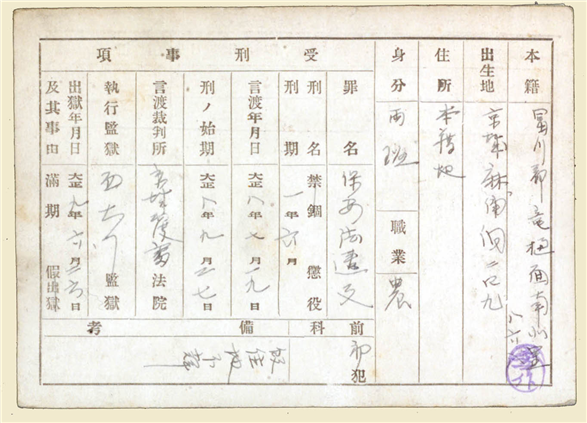 本籍 川郡 面南北里
出生地 京城 麻浦洞二〇九
住所 本籍地
身分 両班 職業 農
受刑事項
罪名 保安法違反
刑名 禁錮 懲役
刑期 一年六月
言渡年月日 大正八年七月一九日
刑ノ始期 大正八年九月二七日
言渡裁判所 京城覆審法院
執行監獄 西大門監獄
出獄年月日 大正九年六月二六日
及其事由 滿期 假出獄
前科 初犯
備考